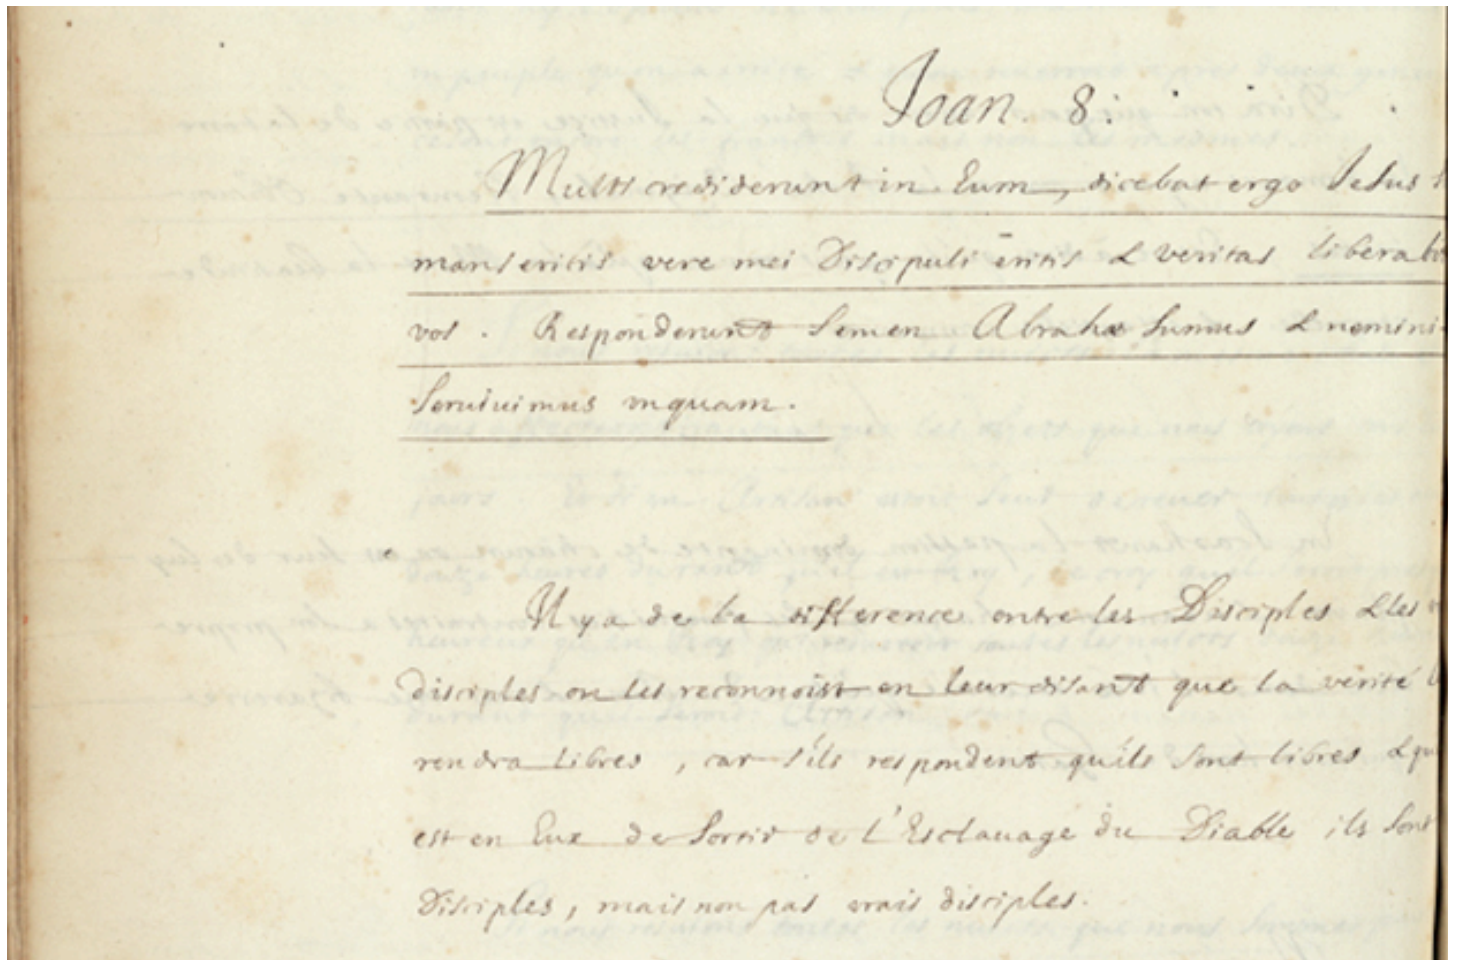 Joan 8.
Multi crediderunt in Eum, dicebat ergo Jesus
manseritis vere mei Discipuli eritis & veritas liberabi
vos. Responderunt semen Abrahæ sumus & nemini
servivimus unquam.
Il y a de la difference entre les Disciples & les
disciples on les reconnoist en leur disant que la verité
rendra libres, car s'ils respondent qu'ils sont libres & qu
est en Eux de sortir de l'Esclavage du Diable ils sont
Disciples, mais non pas vrais disciples.